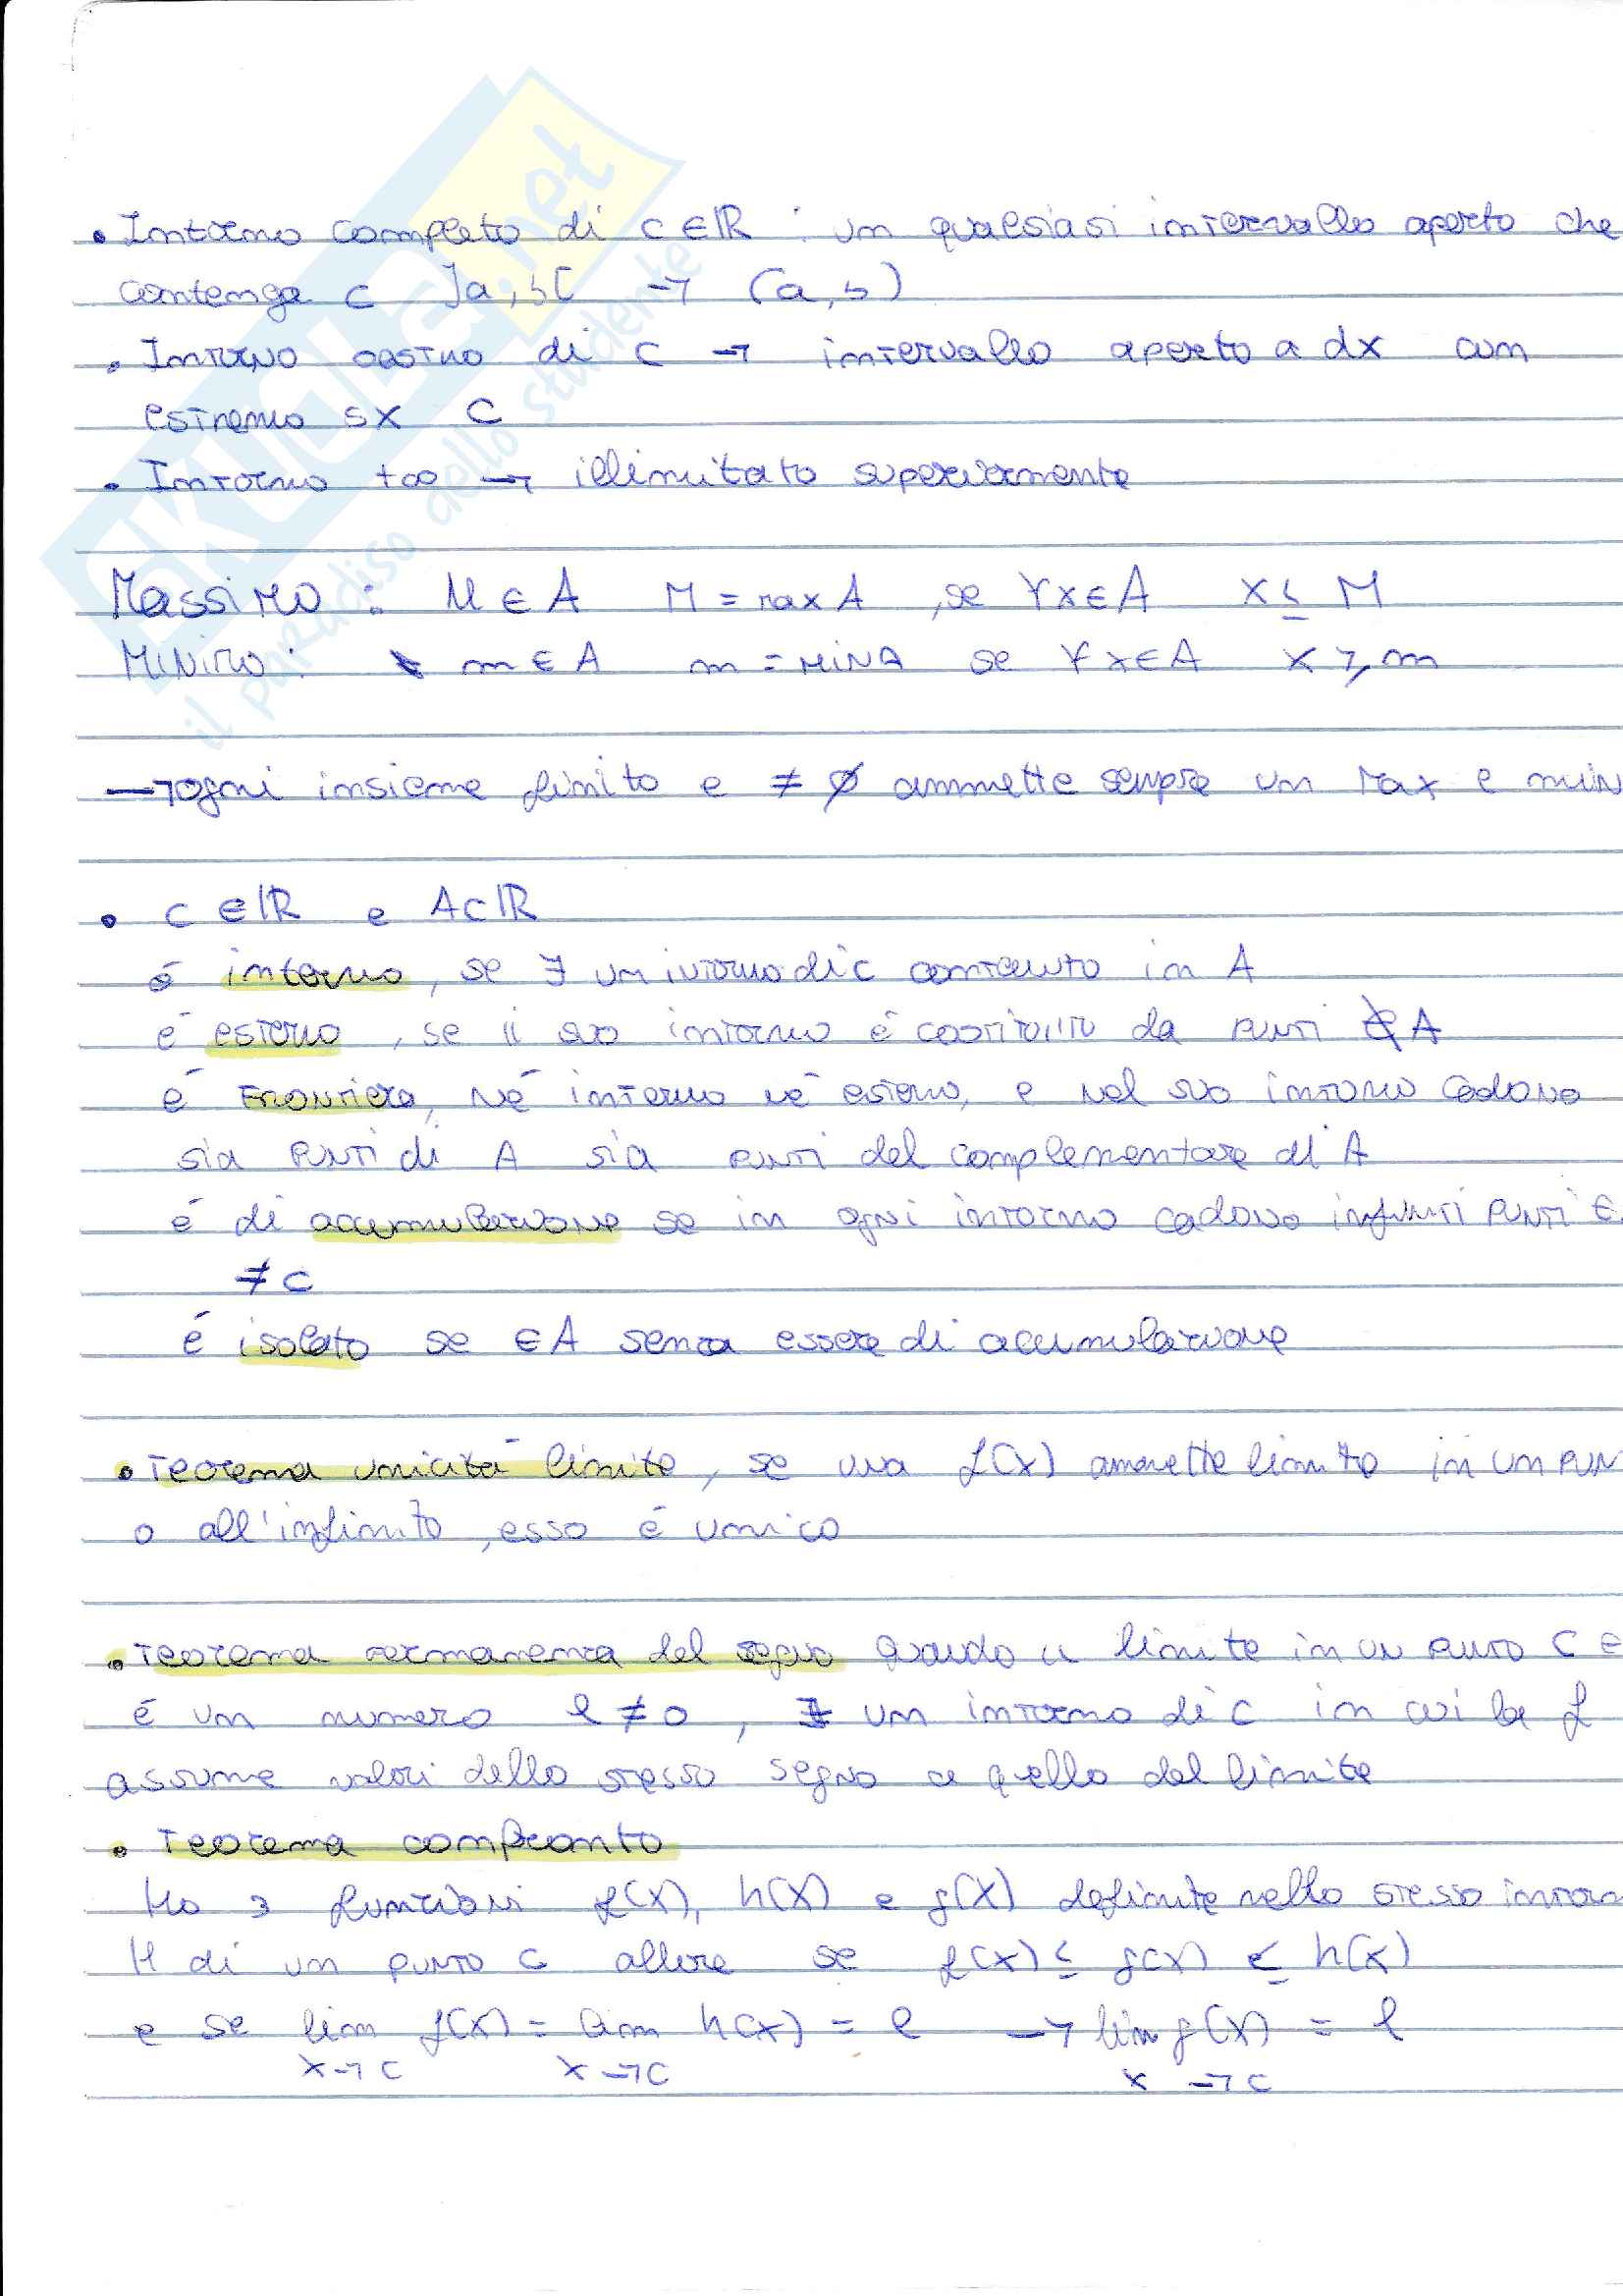 • Intorno completo di c ∈ ℝ : un qualsiasi intervallo aperto che
contenga c ]a, b[ → (a, b)
• Intorno destro di c → intervallo aperto a dx con
estremo sx c
• Intorno +∞ → illimitato superiormente
Massimo : M ∈ A M = max A , se ∀x∈A x ≤ M
Minimo : m ∈ A m = min A se ∀x∈A x ≥ m
→ ogni insieme finito e ≠ ∅ ammette sempre un max e min
• c ∈ ℝ e A⊂ℝ
é interno, se ∃ un intorno di c contenuto in A
é esterno, se il suo intorno é costituito da punti ∉ A
é Frontiera, né interno né esterno, e nel suo intorno cadono
sia punti di A sia punti del complementare di A
é di accumulazione se in ogni intorno cadono infiniti punti ∈
≠ c
é isolato se ∈ A senza essere di accumulazione
• Teorema unicitá limite, se una f(x) ammette limite in un pun
o all'infinito, esso é unico
• Teorema permanenza del segno quando il limite in un punto c ∈
é un numero l ≠ 0, ∃ un intorno di c in cui la f
assume valori dello stesso segno a quello del limite
• Teorema confronto
Ho 3 funzioni f(x), h(x) e g(x) definite nello stesso intorn
H di un punto c allora se f(x) ≤ g(x) ≤ h(x)
e se lim f(x) = lim h(x) = l → lim g(x) = l
x→c x→c x→c
skuola.net
il paradiso dello studente